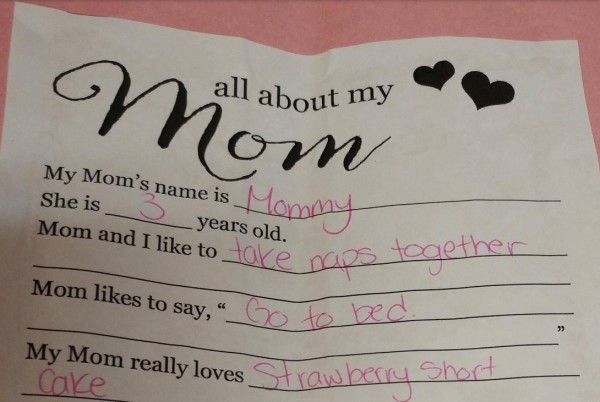 all about my
Mom
My Mom's name is Mommy
She is 3 years old.
Mom and I like to take naps together
Mom likes to say, "Go to bed.
"
My Mom really loves Strawberry Short
Cake